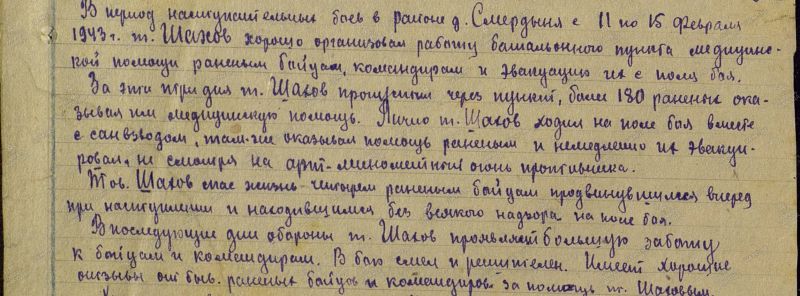 В период наступательных боев в районе д. Смердыня с 11 по 15 февраля
1943 г. т. Шахов хорошо организовал работу батальонного пункта медицинс-
кой помощи раненым бойцам, командирам и эвакуацию их с поля боя.
За эти три дня т. Шахов пропустил через пункт, более 180 раненых ока-
зывая им медицинскую помощь. Лично т. Шахов ходил на поле боя вместе
с санвзводом, там-же оказывал помощь раненым и немедленно их эвакуи-
ровал, не смотря на арт-минометный огонь противника.
Тов. Шахов спас жизнь четырем раненым бойцам продвинувшимся вперед
при наступлении и находящимся без всякого надзора на поле боя.
В последующие дни обороны т. Шахов проявляет большую заботу
к бойцам и командирам. В бою смел и решителен. Имеет хорошие
отзывы от быв. раненых бойцов и командиров за помощь т. Шаховым